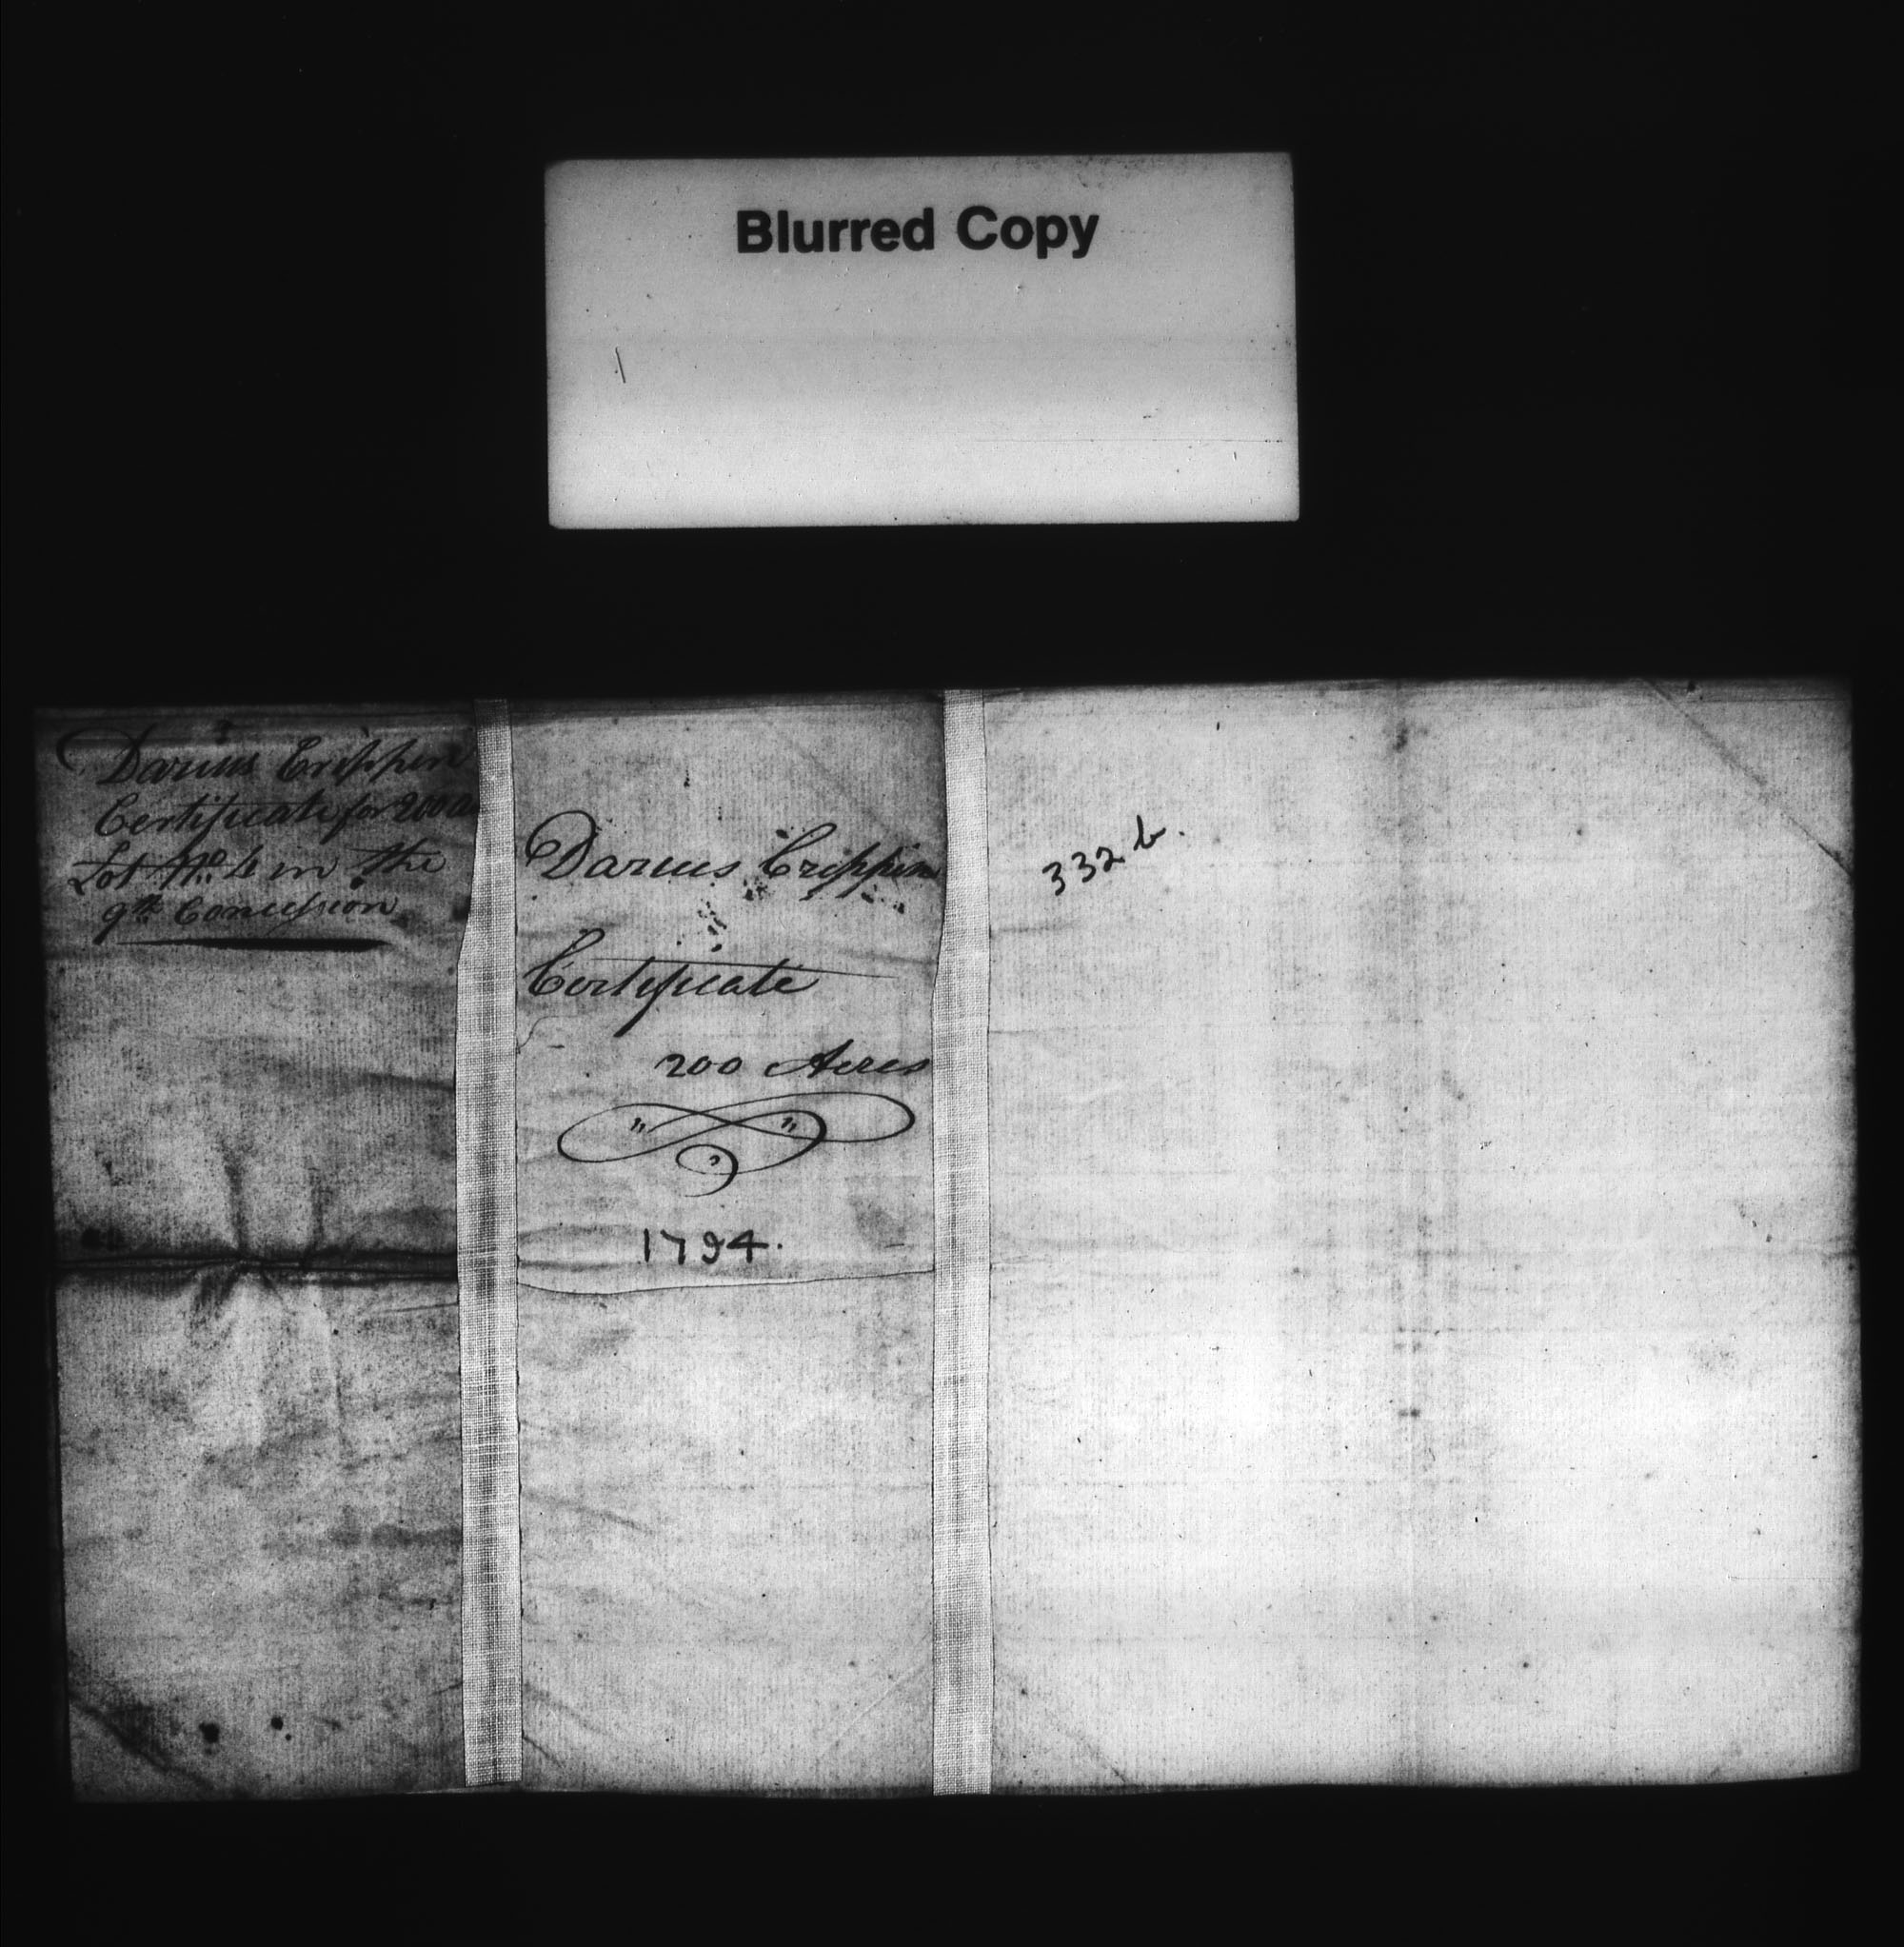 Blurred Copy
Darius Crippen
Certificate for 200 a
Lot No. 4 in the
9th Concession
Darius Crippin
Certificate
200 Acres
1794.
332 b.